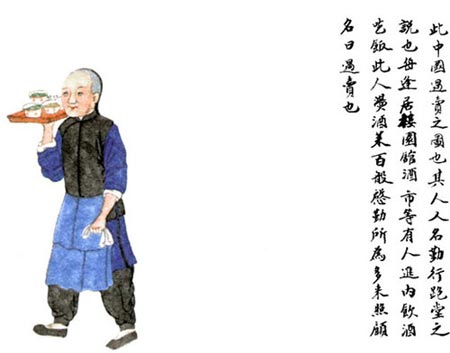 此中國過賣之圖也其人人名勤行跑堂之
説也每逢居樓園館酒市等有人進內飲酒
吃飯此人燙酒菜百般慇勤所為多来照顧
名曰過賣也